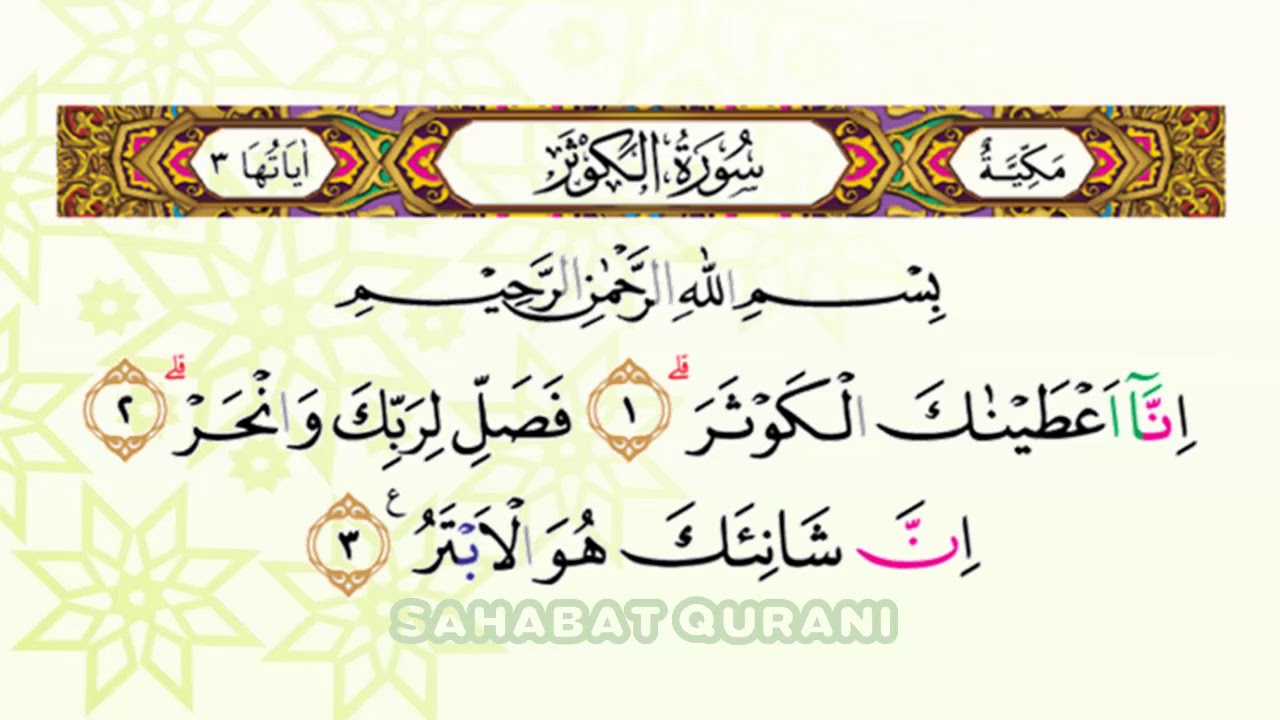 مَكِّيَّةٌ سُوْرَةُ الْكَوْثَرِ اٰيَاتُهَا ٣
بِسْمِ اللّٰهِ الرَّحْمٰنِ الرَّحِيْمِ
اِنَّآ اَعْطَيْنٰكَ الْكَوْثَرَ ۗ ١ فَصَلِّ لِرَبِّكَ وَانْحَرْ ۗ ٢
اِنَّ شَانِئَكَ هُوَ الْاَبْتَرُ ع ٣
SAHABAT QURANI